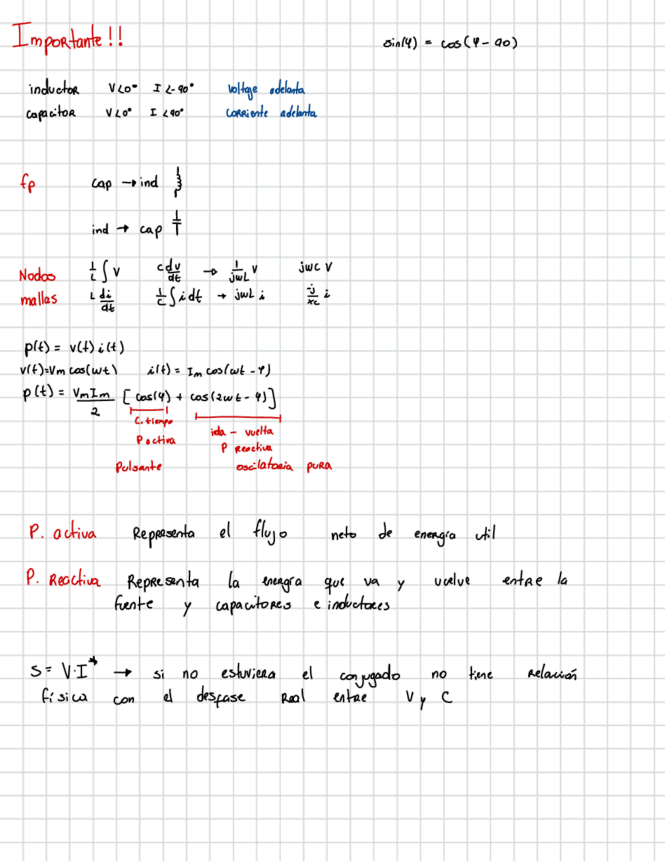 Importante!!
sin(φ) = cos(φ - 90)
inductor V∠0° I∠-90° voltaje adelanta
capacitor V∠0° I∠90° corriente adelanta
fp cap → ind
ind → cap
Nodos 1/L ∫ v c dv/dt → 1/jwL v jwc v
mallas L di/dt 1/c ∫ i dt → jwL i -j/xc i
p(t) = v(t) i(t)
v(t)=Vm cos(wt) i(t) = Im cos(wt - φ)
p(t) = VmIm/2 [cos(φ) + cos(2wt - φ)]
C. tiempo ida - vuelta
P activa P Reactiva
Pulsante oscilatoria pura
P. activa Representa el flujo neto de energía util
P. Reactiva Representa la energía que va y vuelve entre la
fuente y capacitores e inductores
S = V·I* → si no estuviera el conjugado no tiene relación
física con el desfase real entre V y C